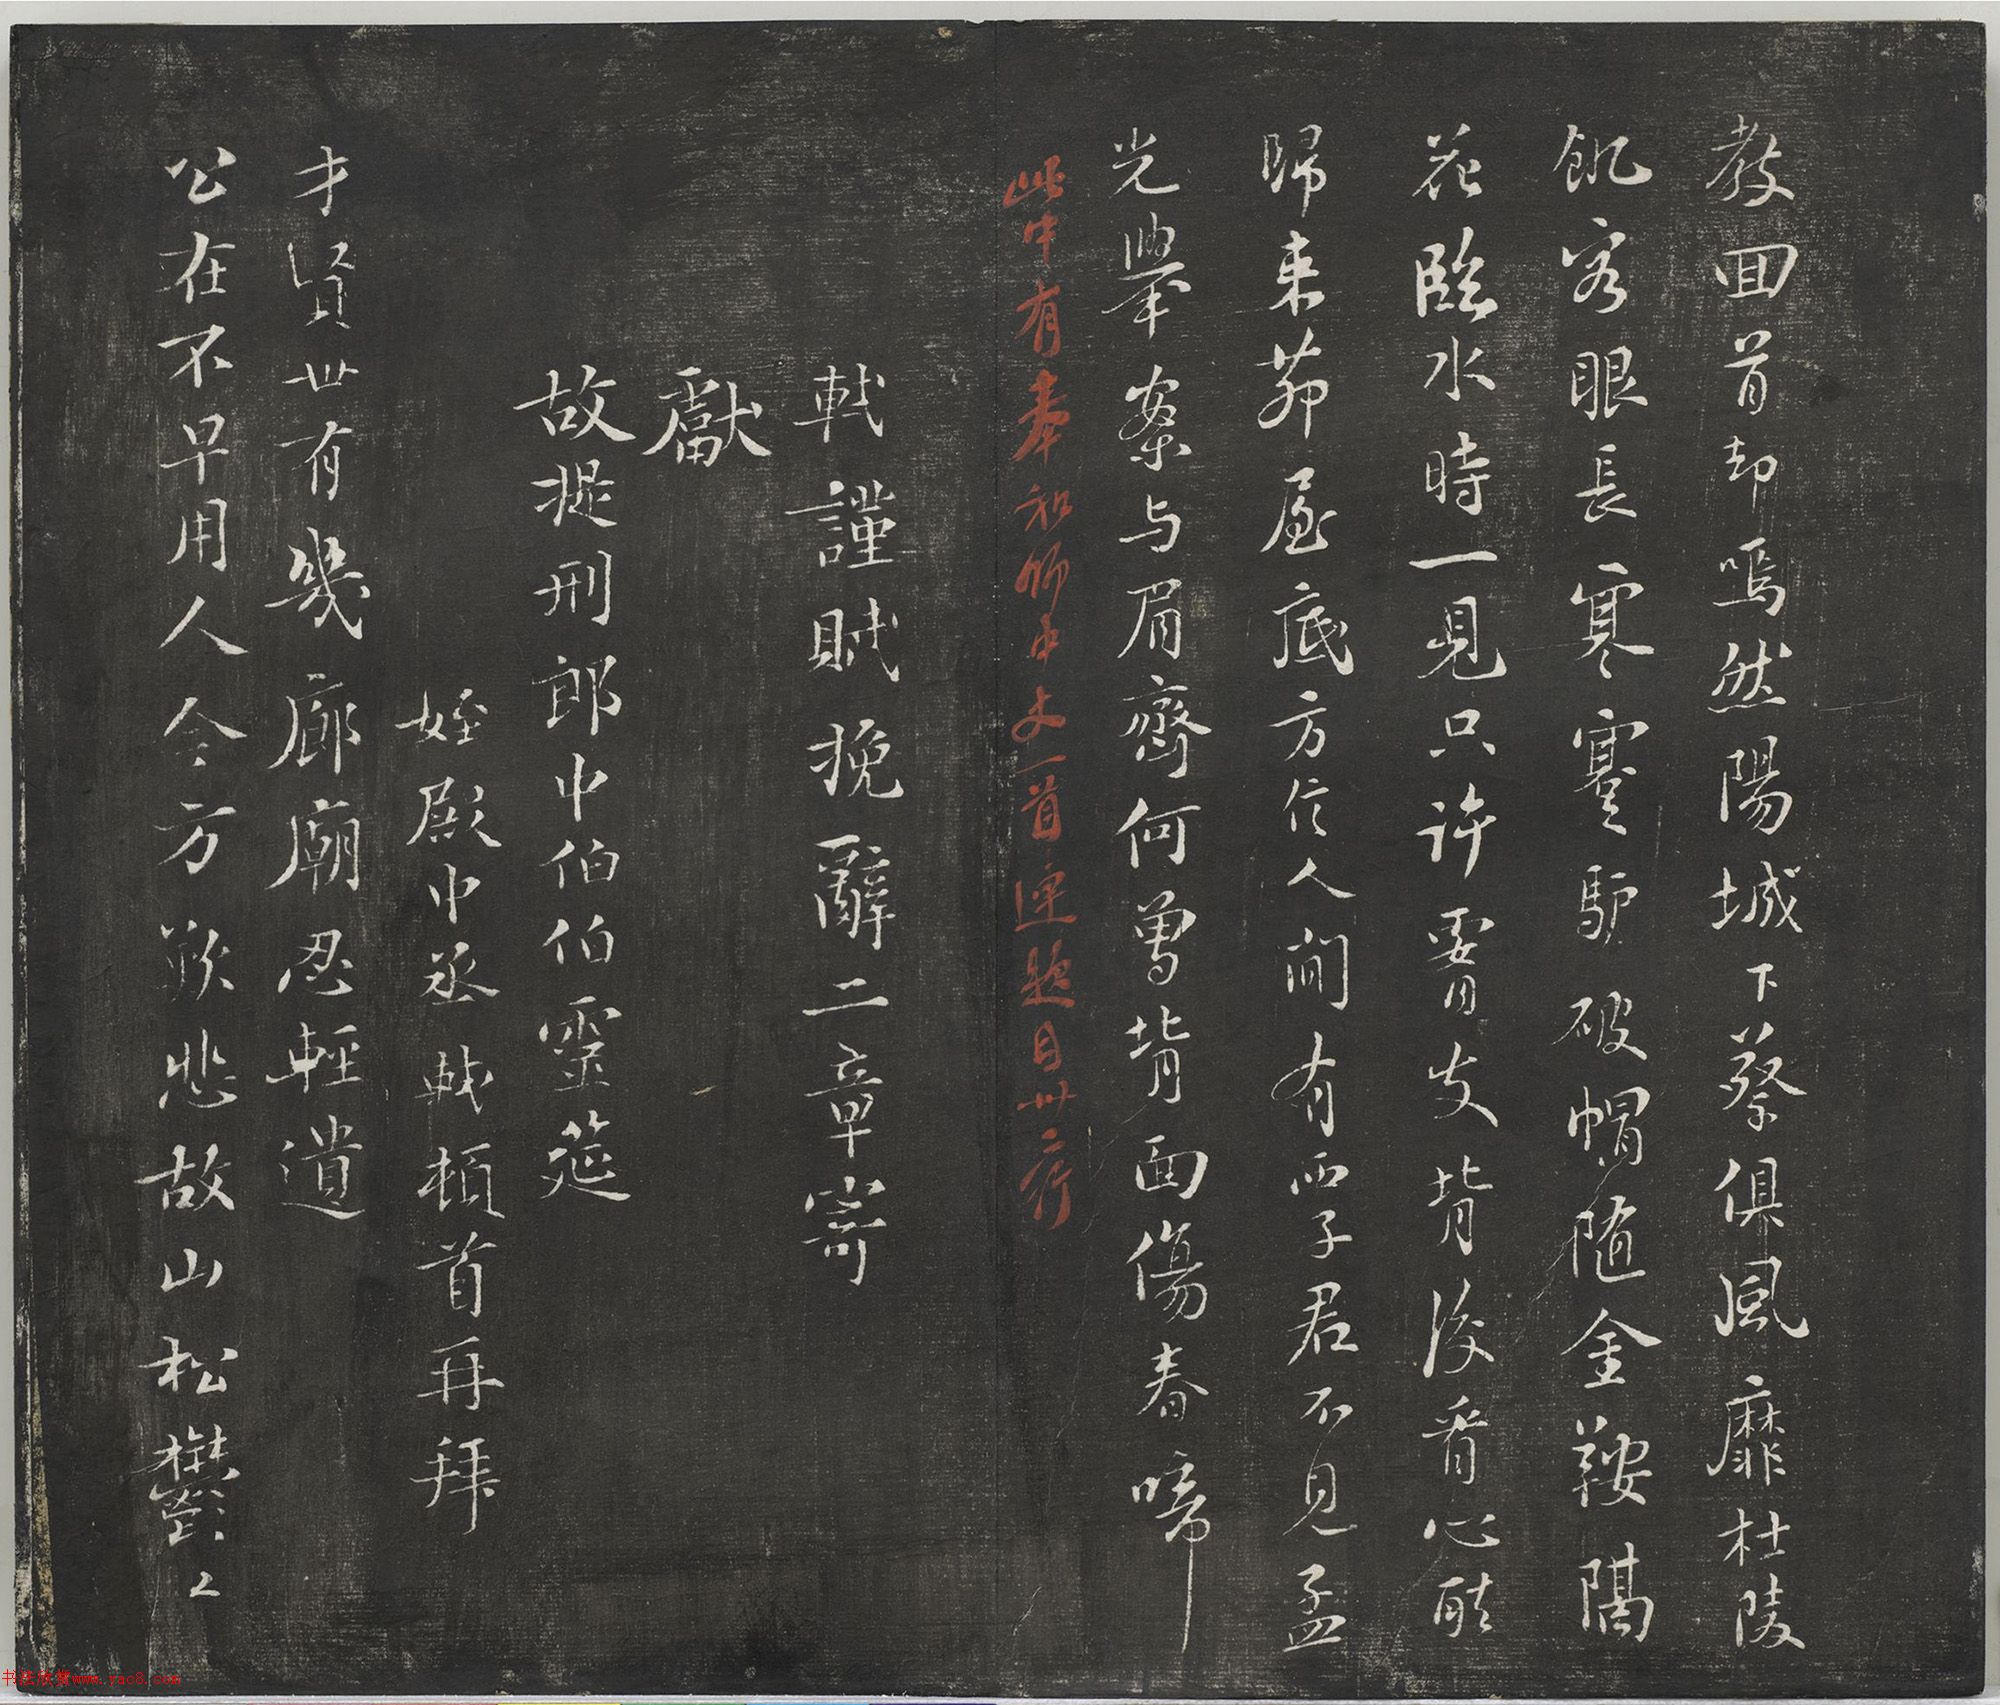 教回首却嫣然陽城下蔡俱風靡杜陵
飢客眼長寒蹇驢破帽隨金鞍隔
花臨水時一見只許腰支背後看心醉
歸來茆屋底方信人間有西子君不見孟
光舉案与眉齊何曾背面傷春啼
此中有奉和師中丈一首連題目廿行
軾謹賦挽辭二章寄
獻
故提刑郎中伯伯靈筵
姪殿中丞軾頓首再拜
才賢世有幾廊廟忍輕遺
公在不早用人今方歎悲故山松鬱〻
书法欣赏www.yac8.com